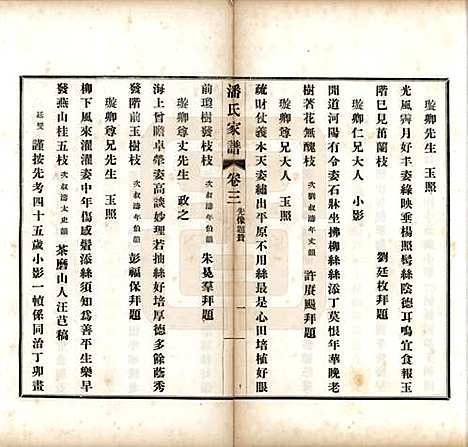 璇卿先生　玉照
光風霽月好丰姿綠映垂楊照鬢絲陰德耳鳴宜食報玉
階已見茁蘭枝　劉廷枚拜題
璇卿仁兄大人　小影
開道河陽有令姿石牀坐拂柳絲絲添丁莫恨年華晚老
樹著花無醜枝　次劉叔濤年丈韻　許賡颺拜題
璇卿尊兄大人　玉照
疏財仗義本天姿繡出平原不用絲最是心田培植好眼
前瓊樹發枝枝　次叔濤年伯韻　朱晃羣拜題
璇卿尊丈先生　政之
海上曾瞻卓犖姿高談妙理若抽絲好培厚德多餘蔭秀
發階前玉樹枝　次叔濤年伯韻　彭福保拜題
璇卿尊兄先生　玉照
柳下風來濯濯姿中年傷感鬢添絲須知為善平生樂早
發燕山桂五枝　次叔濤太史韻　茶磨山人汪芑稿
廷燮　謹按先考四十五歲小影一幀係同治丁卯畫
潘氏家譜　卷二　先像題贊　一